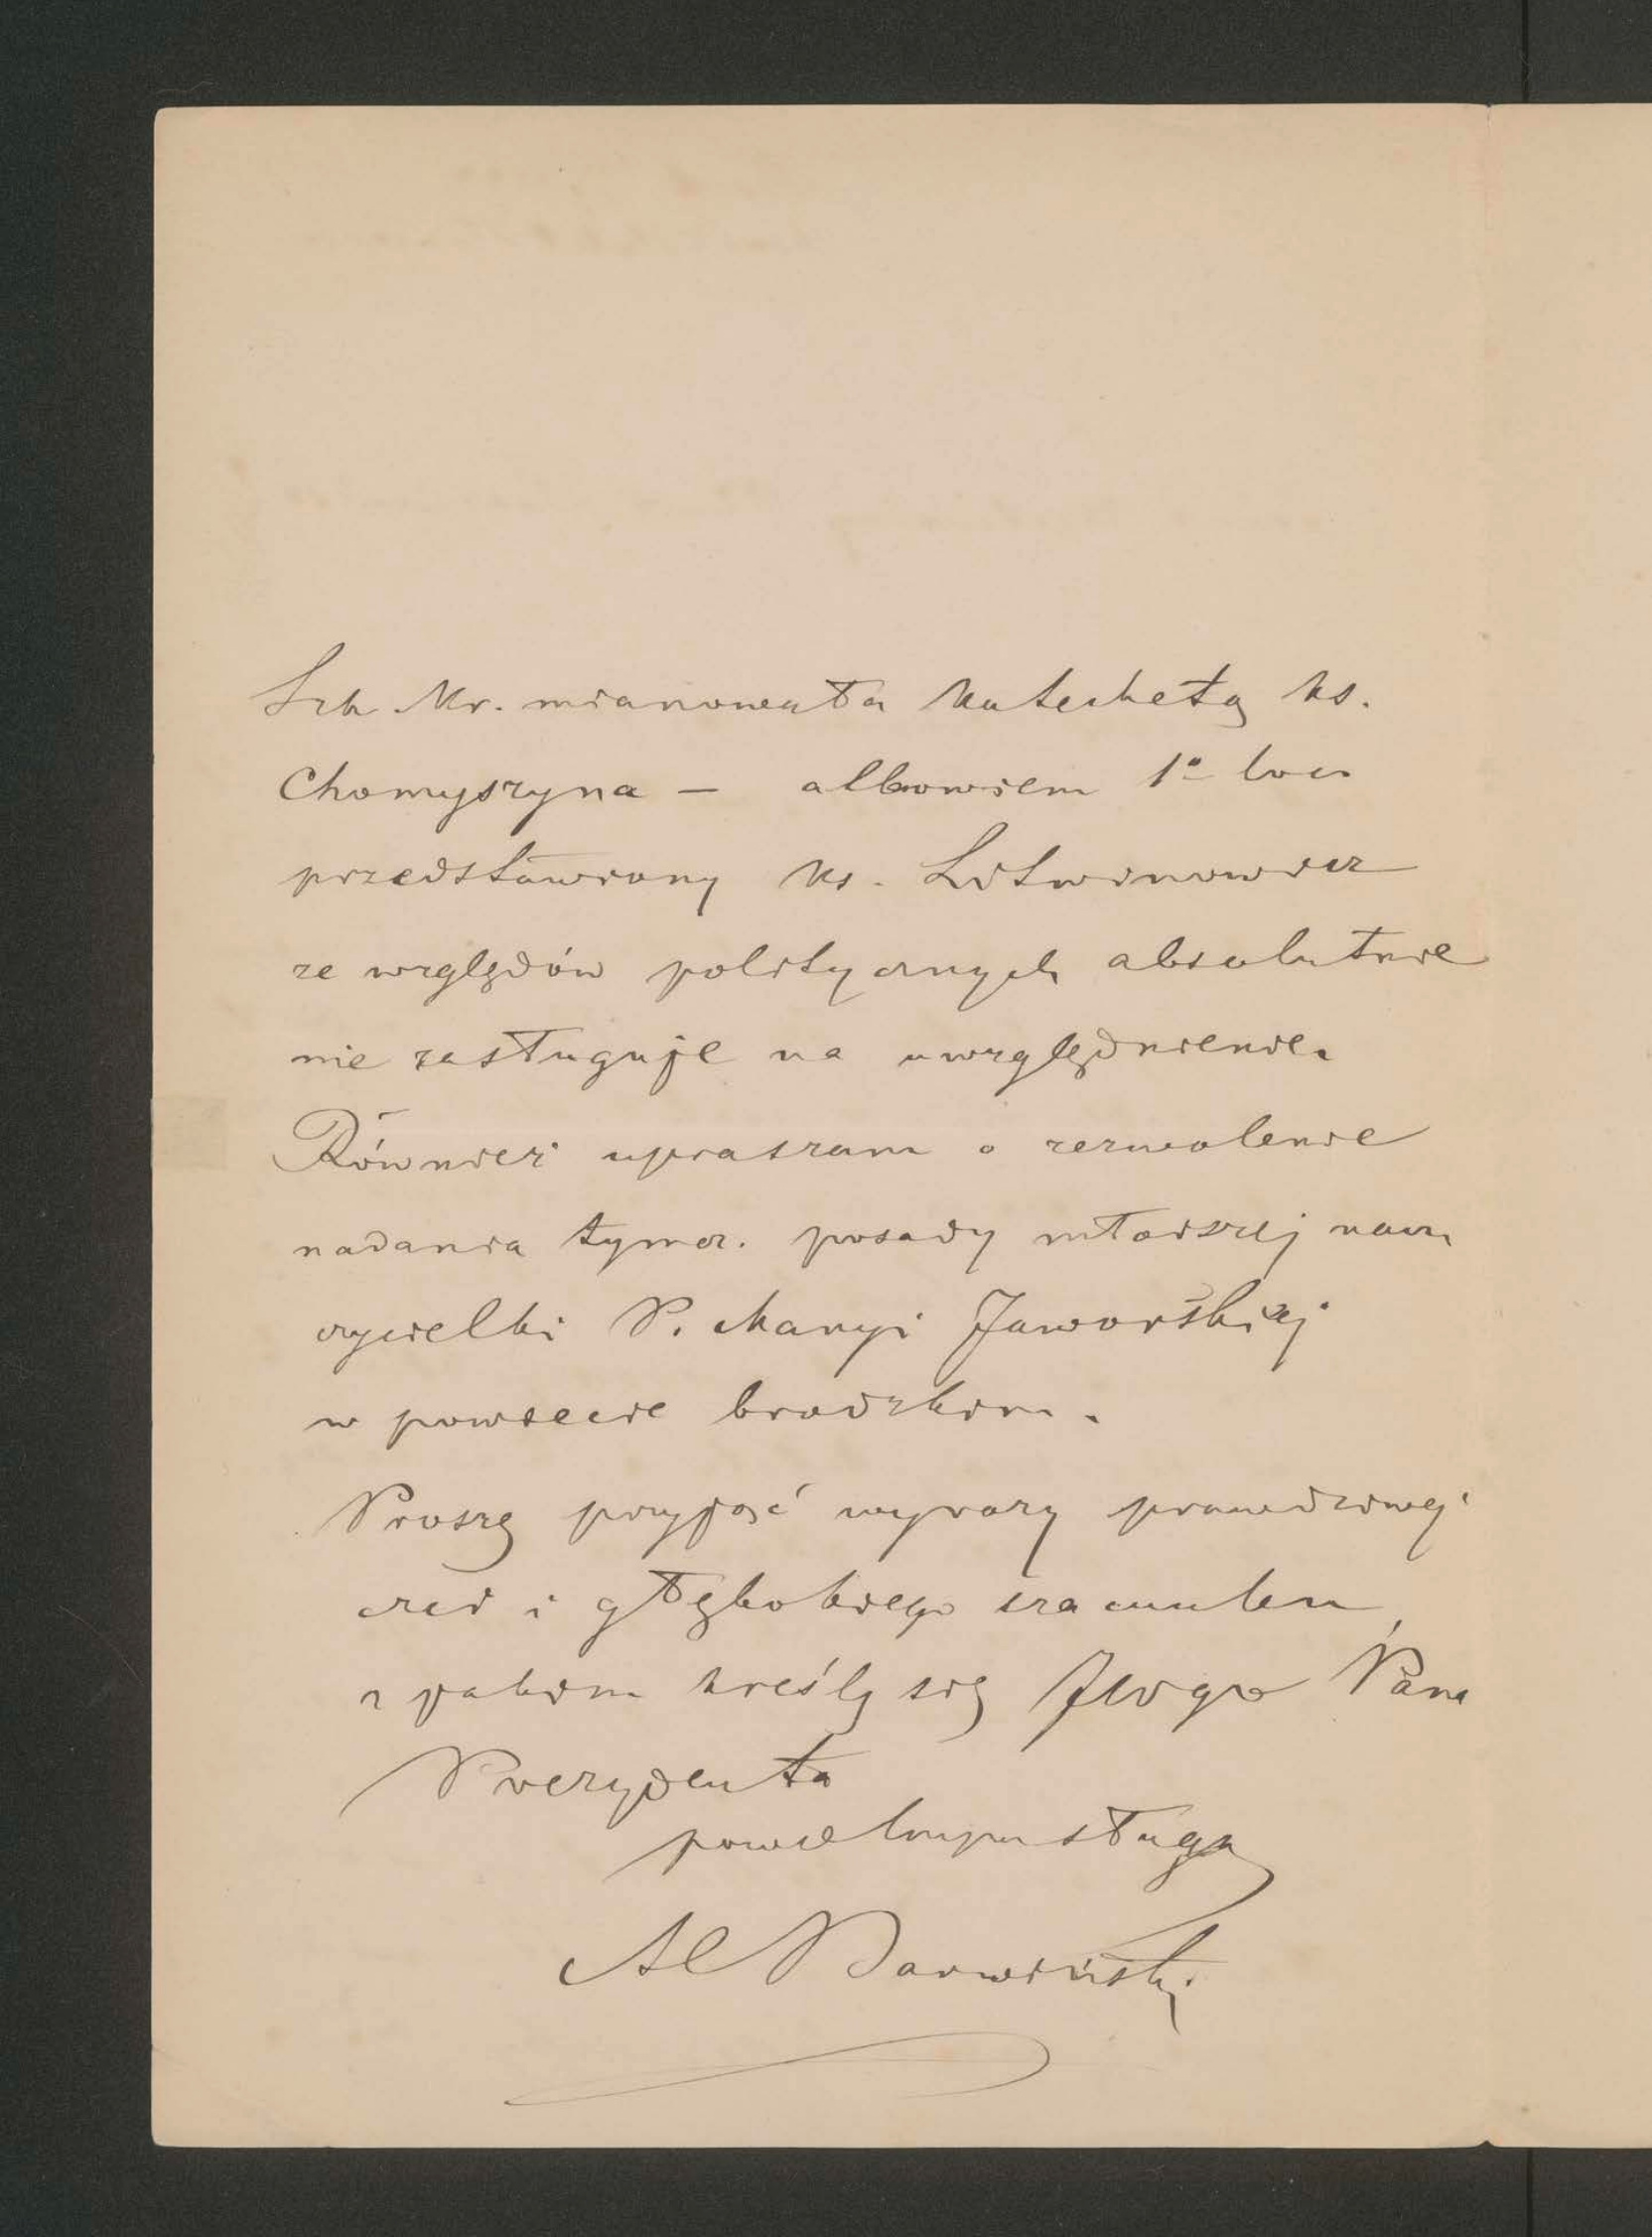 Szk Kr. mianowała katechetą ks.
Chomyszyna — albowiem 1º loco
przedstawiony ks. Litwinowicz
ze względów politycznych absolutnie
nie zasługuje na uwzględnienie.
Również upraszam o zezwolenie
nadania tymcz. posady młodszej nau
czycielki P. Maryi Jaworskiej
w powiecie brodzkim.
Proszę przyjąć wyrazy prawdziwej
czci i głębokiego szacunku,
z jakim kreślę się JWgo Pana
Prezydenta
powolnym sługą
Al Barwiński